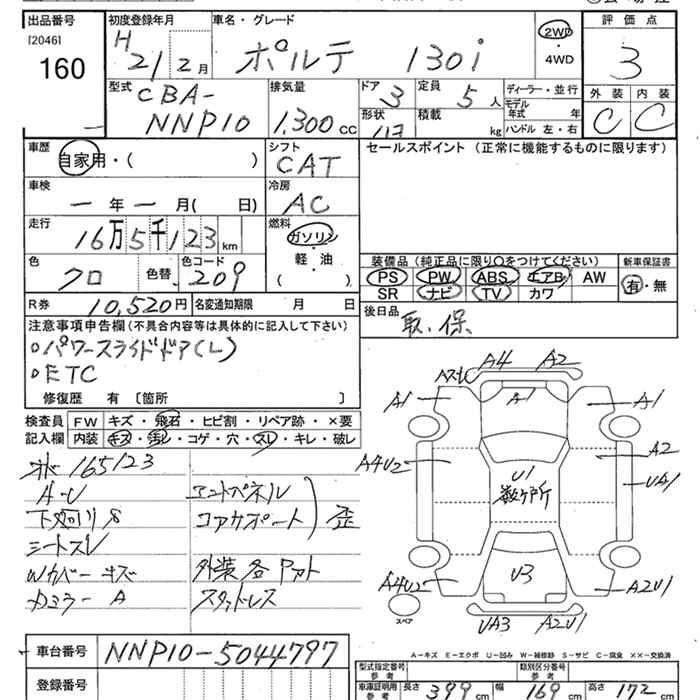 出品番号 初度登録年月 車名・グレード 評価点
[2046] 160
H 21 2月 ポルテ 130i 2WD・4WD 3
型式 排気量 ドア 定員 ディーラー・並行 外装 内装
CBA-NNP10 1,300cc 3 5人 モデル年式 年 C C
形状 積載 kg ハンドル 左・右
車歴 シフト セールスポイント (正常に機能するものに限ります)
自家用・( ) CAT
車検 冷房
ー年ー月( 日) AC
走行 燃料
16万5千123km ガソリン・軽・油 ( )
色 色替 色コード 装備品 (純正品に限り○をつけてください) 新車保証書
クロ 209 PS PW ABS エアB AW 有・無
SR ナビ TV カワ
R券 10,520円 名変通知期限 月 日 後日品
取.保.
注意事項申告欄(不具合内容等は具体的に記入して下さい)
○パワースライドドア(L)
○ETC
修復歴 有 〔箇所 〕
検査員 FW キズ・飛石・ヒビ割・リペア跡・×要
記入欄 内装 キズ・汚レ・コゲ・穴・スレ・キレ・破レ
165123
A-U エンドパネル
コアサポート 歪
シートスレ
Wカバーキズ 外装各
カミラー A スタットレス
A4 A2
A1 A1 A1
A4U2 A2
U1 UA1
数ヶ所
A4U2 U3 A2U1
スペア UA3 A2U1
A-キズ E-エクボ U-凹み W-補修跡 S-サビ C-腐食 ××-交換済
車台番号 NNP10-5044797
型式指定番号 参考 類別区分番号 参考
登録番号 車庫証明用 参考 長さ 399cm 幅 169cm 高さ 172cm